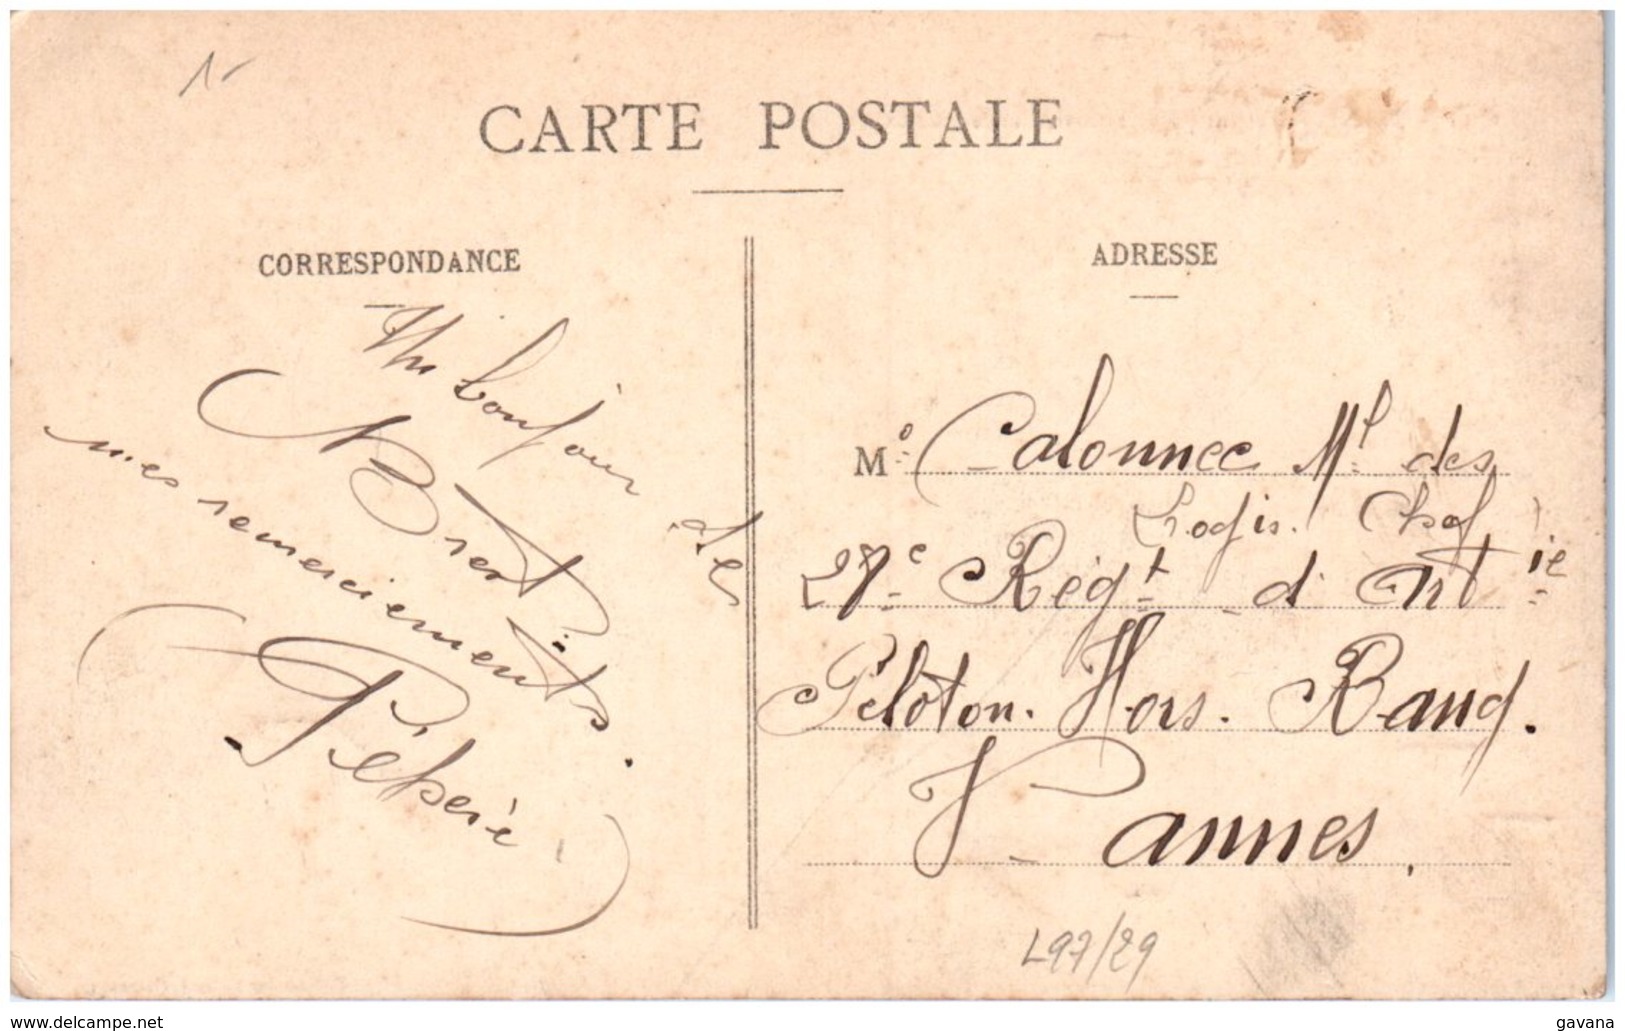 1-
CARTE POSTALE
CORRESPONDANCE
Un bonjour de
Brest
mes remerciements.
ADRESSE
Mr Calonnec Ml des
Logis. Chef
28e Régt d'Artie
Peloton. Hors. Rang.
Vannes.
L97/29
www.delcampe.net
gavana